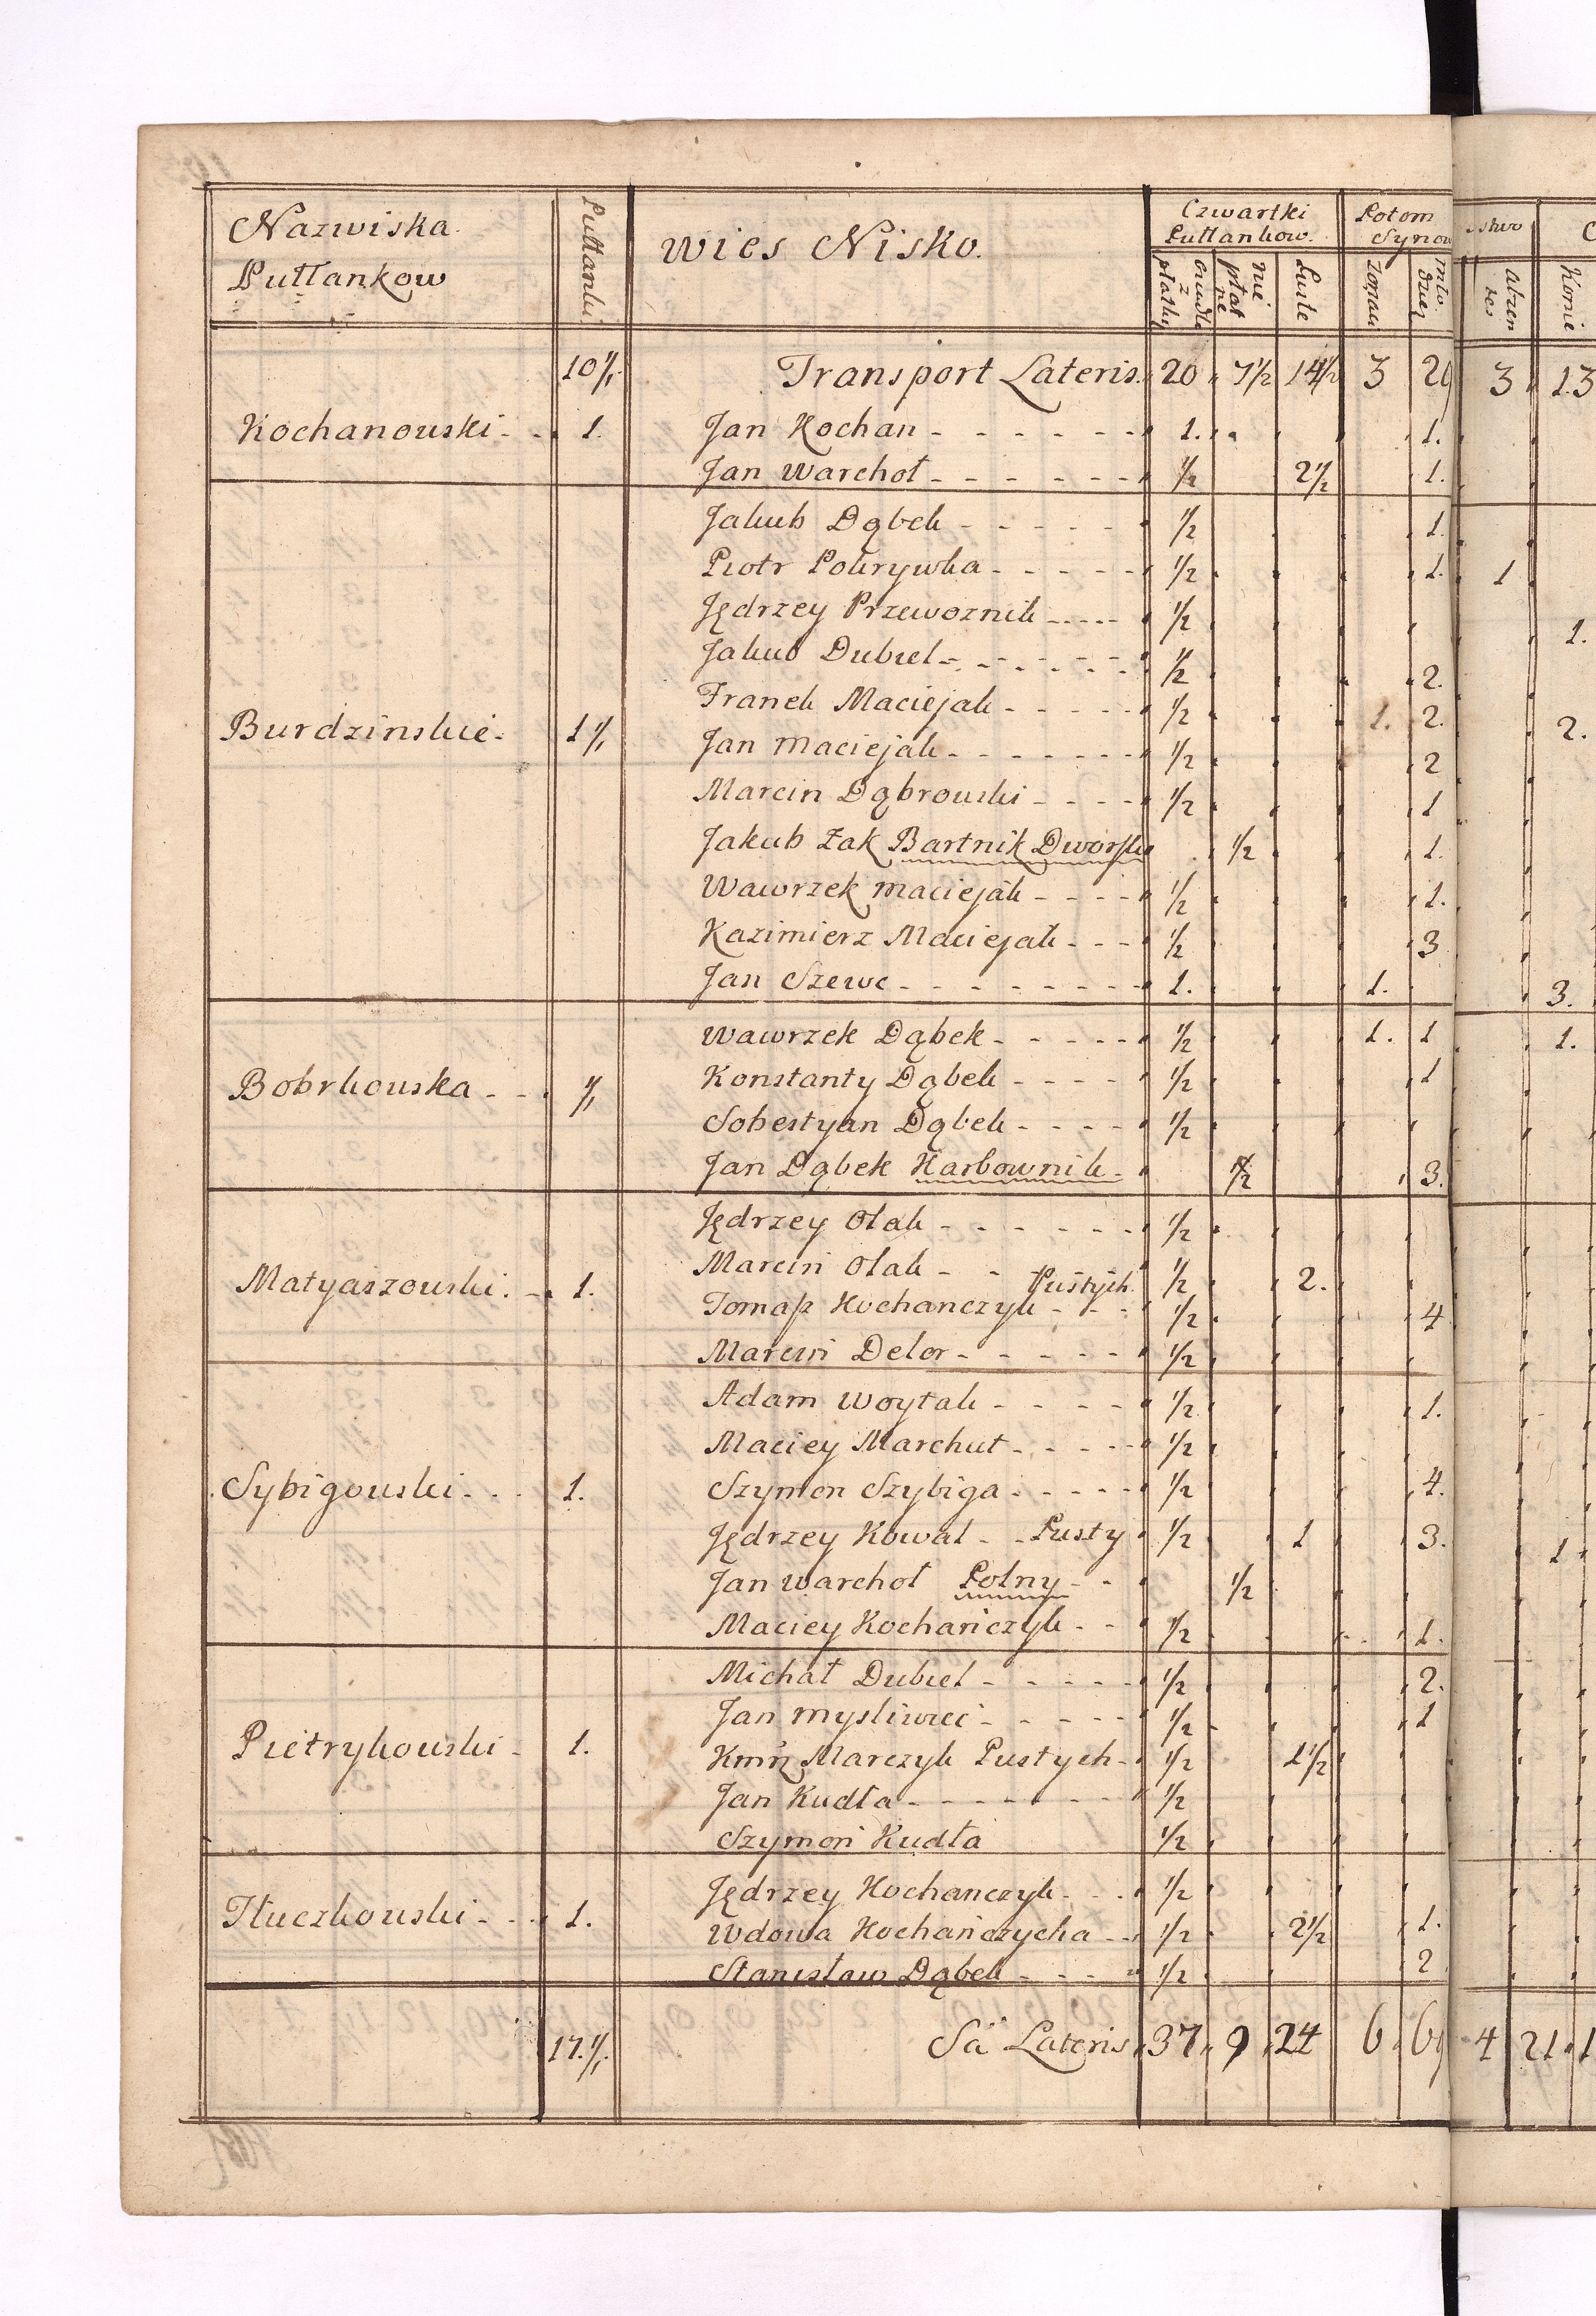 Nazwiska Pułłankow | Pułłanki | wies Nisko. | Czwartki Pułłankow. | Potom Synow
płatki | nie płat ne | Puste | żonaci | abzen tes | Konie
10 1/1 | Transport Lateris. | 20 | 7 1/2 | 14 1/2 | 3 | 29 | 3 | 13
Kochanouski - - | 1. | Jan Kochan - - - - - - | 1. | 1.
Jan Warchoł - - - - - - | 1/2 | 2 1/2 | 1.
Jakub Dąbek - - - - - | 1/2 | 1.
Piotr Pokrywka - - - - - | 1/2 | 1. | 1
Jędrzey Przewoznik - - - - | 1/2 | 1.
Jakub Dubiel - - - - - - | 1/2 | 2.
Franek Maciejak - - - - - | 1/2 | 1. | 2. | 2.
Burdzinskie - | 1 1/1 | Jan Maciejak - - - - - - | 1/2 | 2
Marcin Dąbrouski - - - - | 1/2 | 1
Jakub Żak Bartnik Dworski | 1/2 | 1.
Wawrzek Maciejak - - - - | 1/2 | 1.
Kazimierz Maciejak - - - | 1/2 | 3
Jan Szewc - - - - - - - - | 1. | 1. | 3.
Wawrzek Dąbek - - - - - | 1/2 | 1. | 1 | 1.
Bobrkouska - - | 1/1 | Konstanty Dąbek - - - - | 1/2 | 1
Sobestyan Dąbek - - - - | 1/2
Jan Dąbek Harbownik - | 1/2 | 3.
Jędrzey Olak - - - - - - | 1/2
Marcin Olak - - - Pustych | 1/2 | 2.
Matyaszouski. - | 1. | Tomasz Kochanczyk - - - | 1/2 | 4
Marcin Delor - - - - - | 1/2
Adam Woytak - - - - - | 1/2 | 1.
Maciey Marchut - - - - - | 1/2
Sybigouski - - - | 1. | Szymon Szybiga - - - - - | 1/2 | 4.
Jędrzey Kowal - - Pusty | 1/2 | 1 | 3. | 1
Jan Warchoł Polny - - | 1/2
Maciey Kochańczyk - - | 1/2 | 1.
Michał Dubiel - - - - - | 1/2 | 2.
Jan Mysliwiec - - - - - | 1/2 | 1
Pietrykouski - | 1. | Kmrz Marczyk Pustych - | 1/2 | 1 1/2
Jan Kudła - - - - - - - | 1/2
Szymon Kudła | 1/2
Jędrzey Kochanczyk - - - | 1/2
Tłuczkouski - - | 1. | Wdowa Kochańczycha - - | 1/2 | 2 1/2 | 1.
Stanisław Dąbek - - - - | 1/2 | 2
17 1/1 | Sa Lateris | 37 | 9 | 24 | 6 | 4 | 21